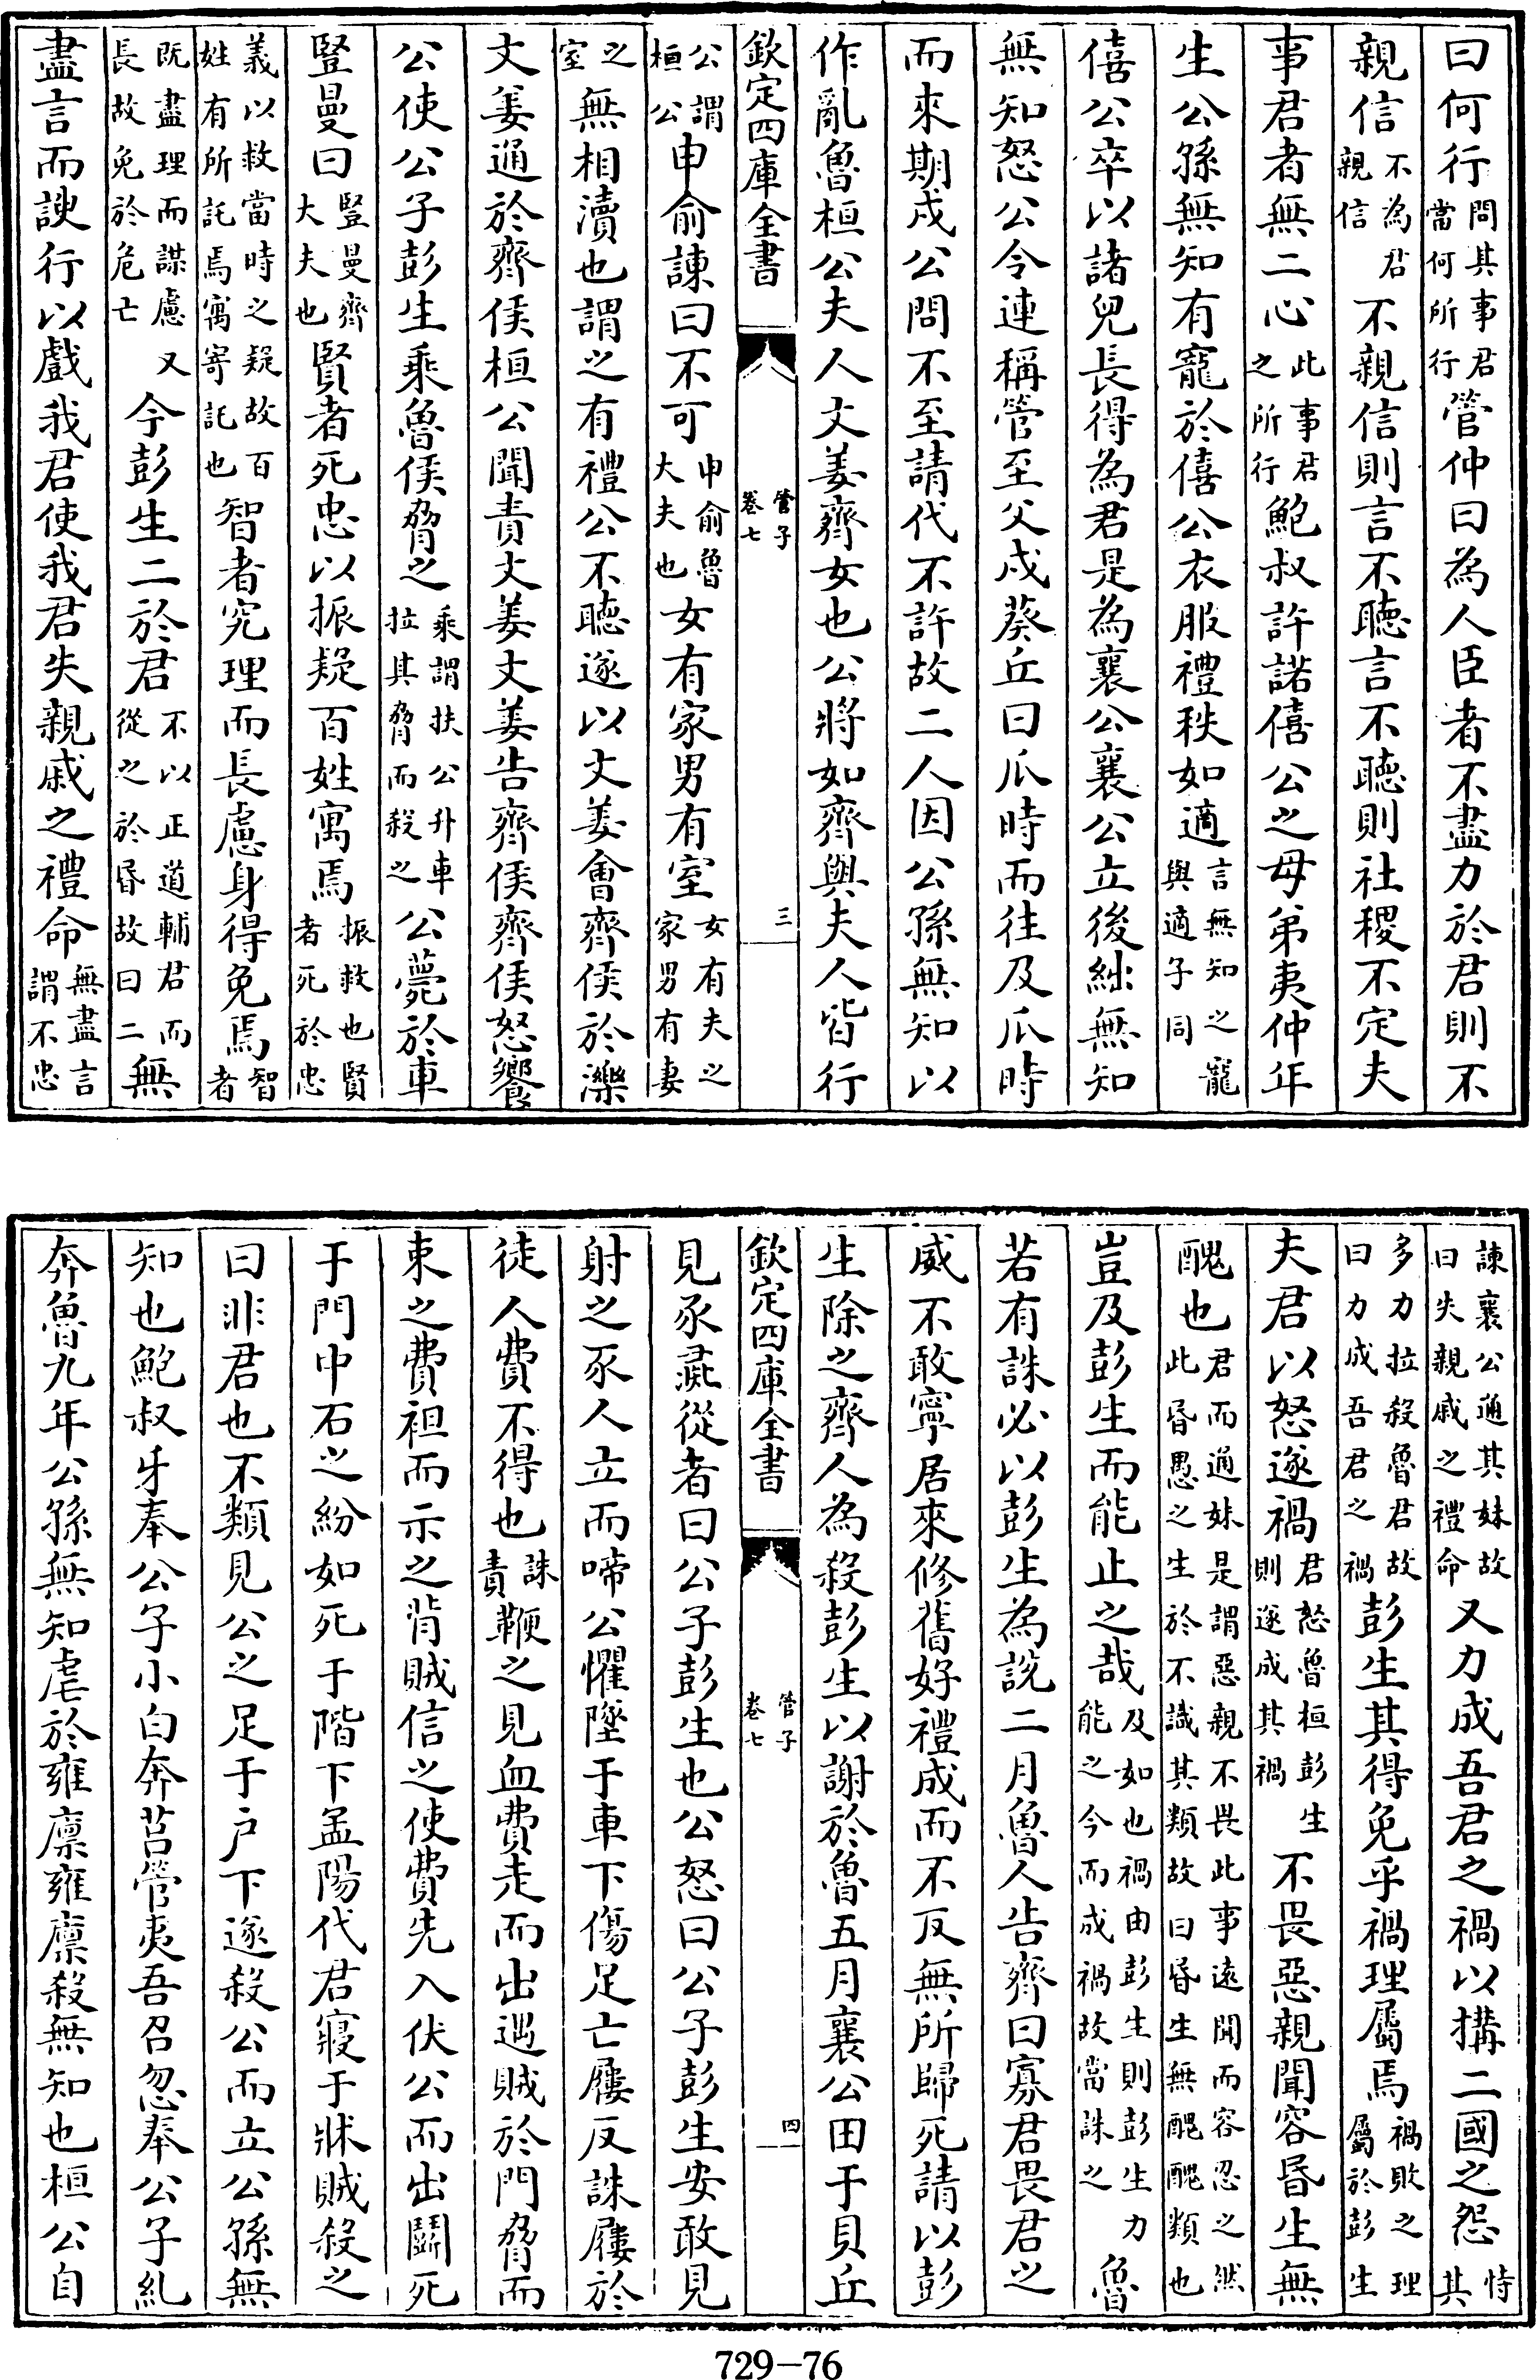 曰何行問其事君當何所行管仲曰為人臣者不盡力於君則不
親信不為君親信不親信則言不聽言不聽則社稷不定夫
事君者無二心此事君之所行鮑叔許諾僖公之母弟夷仲年
生公孫無知有寵於僖公衣服禮秩如適言無知之寵與適子同
僖公卒以諸兒長得為君是為襄公襄公立後絀無知
無知怒公令連稱管至父戍葵丘曰瓜時而往及瓜時
而來期戍公問不至請代不許故二人因公孫無知以
作亂魯桓公夫人文姜齊女也公將如齊與夫人皆行
欽定四庫全書 管子卷七 三
公謂桓公申俞諫曰不可申俞魯大夫也女有家男有室女有夫之家男有妻
之室無相瀆也謂之有禮公不聽遂以文姜會齊侯於濼
文姜通於齊侯桓公聞責文姜文姜告齊侯齊侯怒饗
公使公子彭生乘魯侯脅之乘謂扶公升車拉其脅而殺之公薨於車
豎曼曰豎曼齊大夫也賢者死忠以振疑百姓寓焉振救也賢者死於忠
義以救當時之疑故百姓有所託焉寓寄託也智者究理而長慮身得免焉智者
既盡理而謀慮又長故免於危亡今彭生二於君不以正道輔君而從之於昏故曰二無
盡言而諛行以戲我君使我君失親戚之禮命無盡言謂不忠
諫襄公通其妹故曰失親戚之禮命又力成吾君之禍以搆二國之怨恃其
多力拉殺魯君故曰力成吾君之禍彭生其得免乎禍理屬焉禍敗之理屬於彭生
夫君以怒遂禍君怒魯桓彭生則遂成其禍不畏惡親聞容昏生無
醜也君而通妹是謂惡親不畏此事遠聞而容忍之然此昏愚之生於不識其類故曰昏生無醜醜類也
豈及彭生而能止之哉及如也禍由彭生則彭生力能之今而成禍故當誅之魯
若有誅必以彭生為說二月魯人告齊曰寡君畏君之
威不敢寧居來修舊好禮成而不反無所歸死請以彭
生除之齊人為殺彭生以謝於魯五月襄公田于貝丘
欽定四庫全書 管子卷七 四
見豕彘從者曰公子彭生也公怒曰公子彭生安敢見
射之豕人立而啼公懼墜于車下傷足亡屨反誅屨於
徒人費不得也誅責鞭之見血費走而出遇賊於門脅而
束之費袒而示之背賊信之使費先入伏公而出鬭死
于門中石之紛如死于階下孟陽代君寢于牀賊殺之
曰非君也不類見公之足于户下遂殺公而立公孫無
知也鮑叔牙奉公子小白奔莒管夷吾召忽奉公子糺
奔魯九年公孫無知虐於雍廩雍廩殺無知也桓公自
729-76